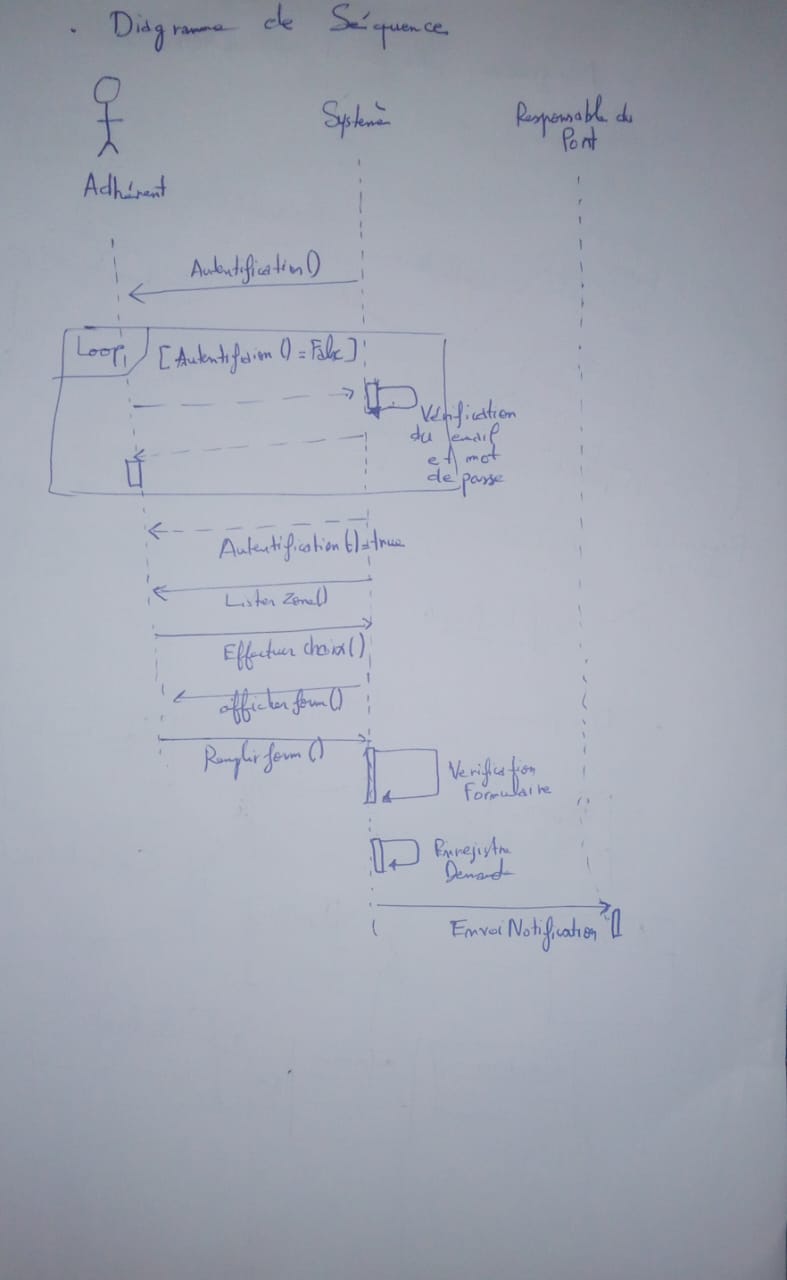 . Diagramme de Séquence
Système
Responsable du
Pont
Adhérent
Autentification()
Loop
[Autentifction() = False]
Vérification
du email
et mot
de passe
Autentification()=true
Lister Zone()
Effectuer choix()
afficher form()
Remplir form()
Verification
Formulaire
Enregistre
Demande
Envoi Notification